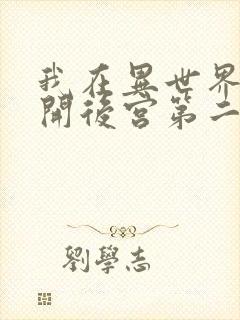 我在異世界
開後宮第二
劉學志